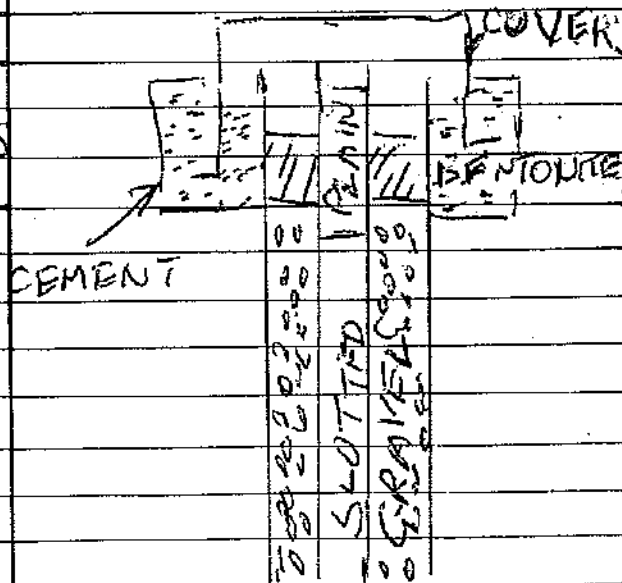 COVER
PLAIN
BENTONITE
CEMENT
SLOTTED
GRAVELS